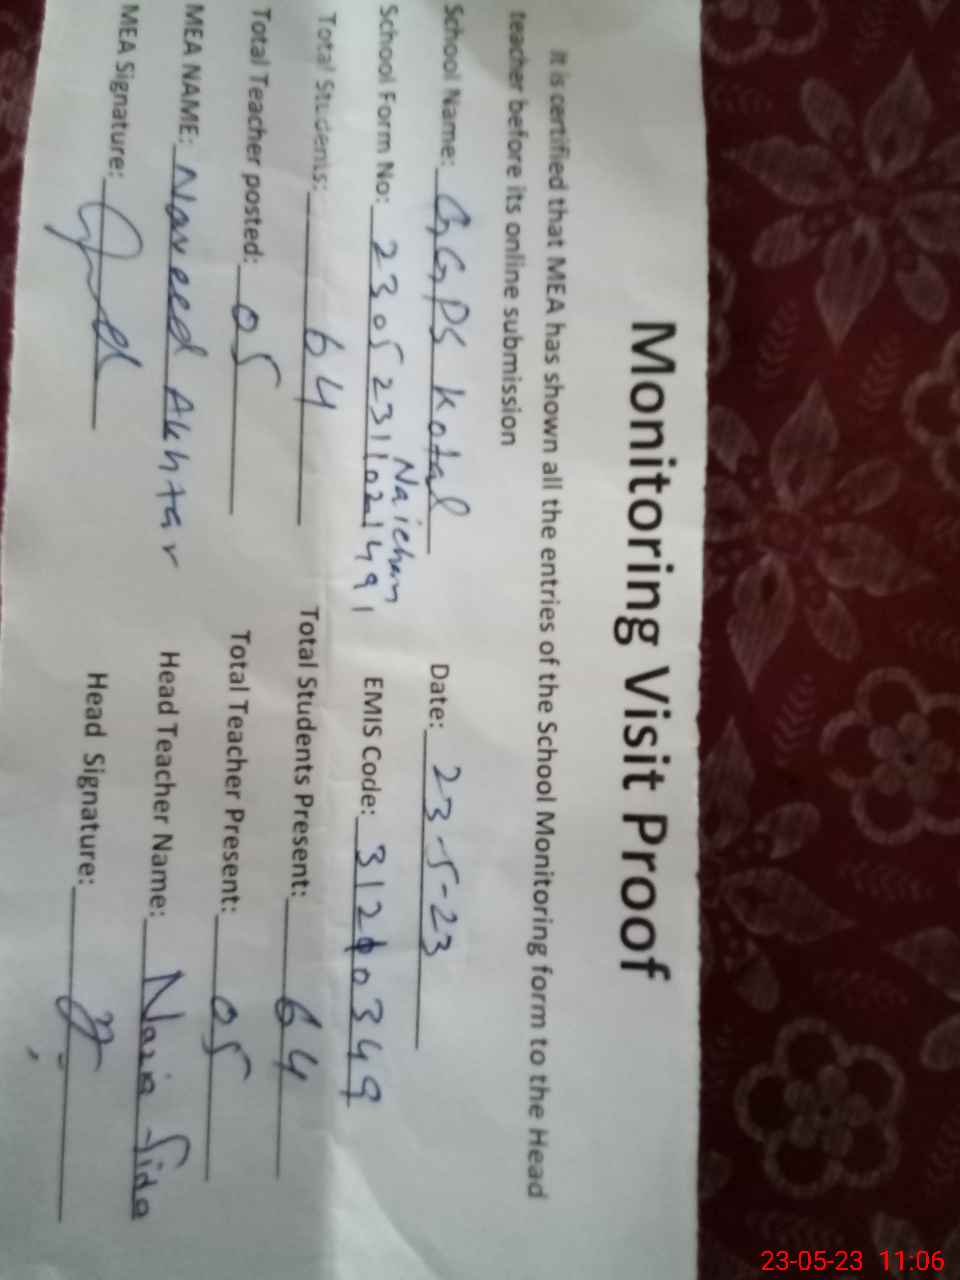 Monitoring Visit Proof
It is certified that MEA has shown all the entries of the School Monitoring form to the Head
teacher before its online submission
School Name: GGPS Kotal Naicham Date: 23-5-23
School Form No: 23052311021491 EMIS Code: 31210349
Total Students: 64 Total Students Present: 64
Total Teacher posted: 05 Total Teacher Present: 05
MEA NAME: Naveed Akhtar Head Teacher Name: Nazia Fida
MEA Signature: Head Signature:
23-05-23 11:06